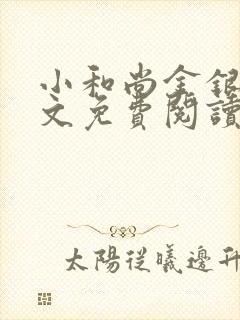 小和尚金銀
文免費閱讀
太陽從曦邊升